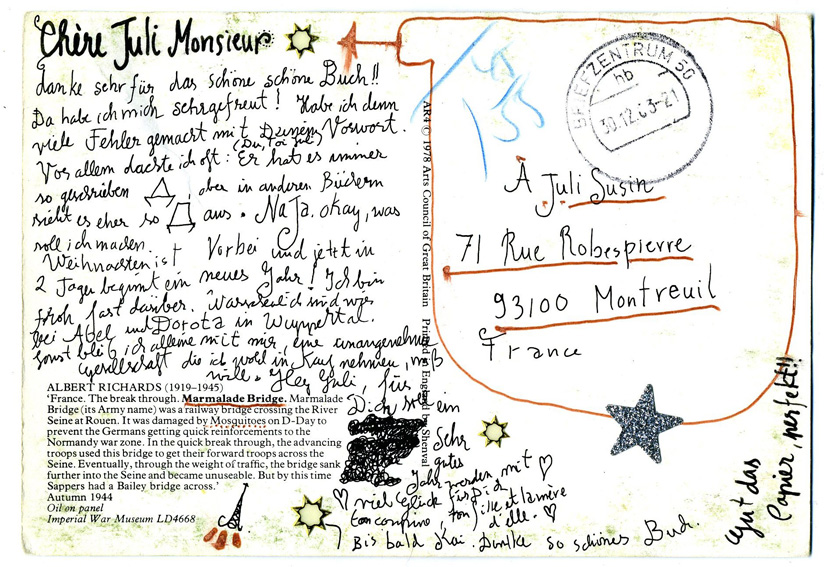 Chère Juli Monsieur
danke sehr für das schöne schöne Buch!!
Da habe ich mich sehr gefreut! Habe ich denn
viele Fehler gemacht mit Deinem Vorwort.
Vor allem dachte ich oft: Er hat es immer
so geschrieben , aber in anderen Büchern
sieht es eher so aus. Na Ja. okay, was
soll ich machen.
Weihnachten ist Vorbei und jetzt in
2 Tagen beginnt ein neues Jahr! Ich bin
froh fast darüber. Wahrscheinlich sind wir
bei Abel und Dorota in Wuppertal.
Sonst bleib ich alleine mit mir, eine unangenehme
Gesellschaft die ich wohl in Kauf nehmen muß
Hey Juli, für
Dich soll ein
Sehr
gutes
Jahr werden mit
viel Glück für Dich
ton copine, ton fille et la mère
d'elle.
Bis bald Kai. Danke so schönes Buch.
ALBERT RICHARDS (1919–1945)
'France. The break through. Marmalade Bridge. Marmalade
Bridge (its Army name) was a railway bridge crossing the River
Seine at Rouen. It was damaged by Mosquitoes on D-Day to
prevent the Germans getting quick reinforcements to the
Normandy war zone. In the quick break through, the advancing
troops used this bridge to get their forward troops across the
Seine. Eventually, through the weight of traffic, the bridge sank
further into the Seine and became unuseable. But by this time
Sappers had a Bailey bridge across.'
Autumn 1944
Oil on panel
Imperial War Museum LD4668
ART © 1978 Arts Council of Great Britain Printed in England by Shenval
BRIEFZENTRUM 50
hb
30.12.03-21
À Juli Susin
71 Rue Robespierre
93100 Montreuil
France
Gut das
Papier, perfekt!!